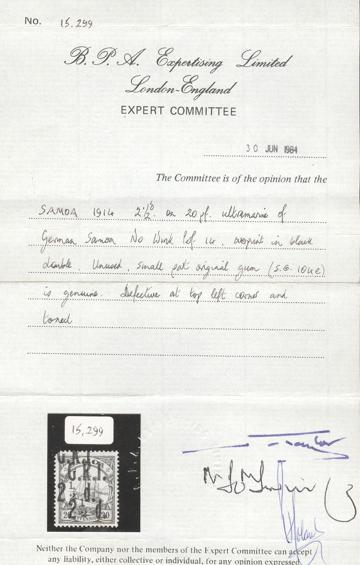 No. 15,299
B. P. A. Expertising Limited
London-England
EXPERT COMMITTEE
30 JUN 1984
The Committee is of the opinion that the
SAMOA 1914 2½d on 20 pf. ultramarine of
German Samoa No Wmk Pf 14, overprint in black
double. Unused, small part original gum (S.G. 104e)
is genuine. Defective at top left corner and
toned
15,299
G.R.I.
G.R.I.
2½ d.
2½ d.
20 20
Neither the Company nor the members of the Expert Committee can accept
any liability, either collective or individual, for any opinion expressed.